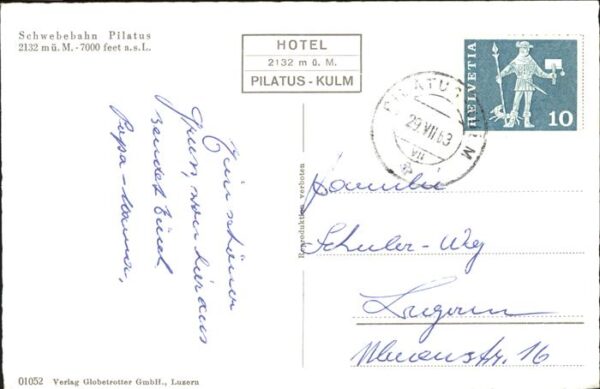 Schwebebahn Pilatus
2132 m ü. M. - 7000 feet a. s. L.
HOTEL
2132 m ü. M.
PILATUS - KULM
HELVETIA
10
PILATUS KULM
29.VII.63
VII
Reproduktion verboten
Ein schöner
Gruss, von hier aus
sendet Euch
Papa - Mama,
Familie
Schuler-Weg
Lugano
Ulmenstr. 16
01052 Verlag Globetrotter GmbH., Luzern